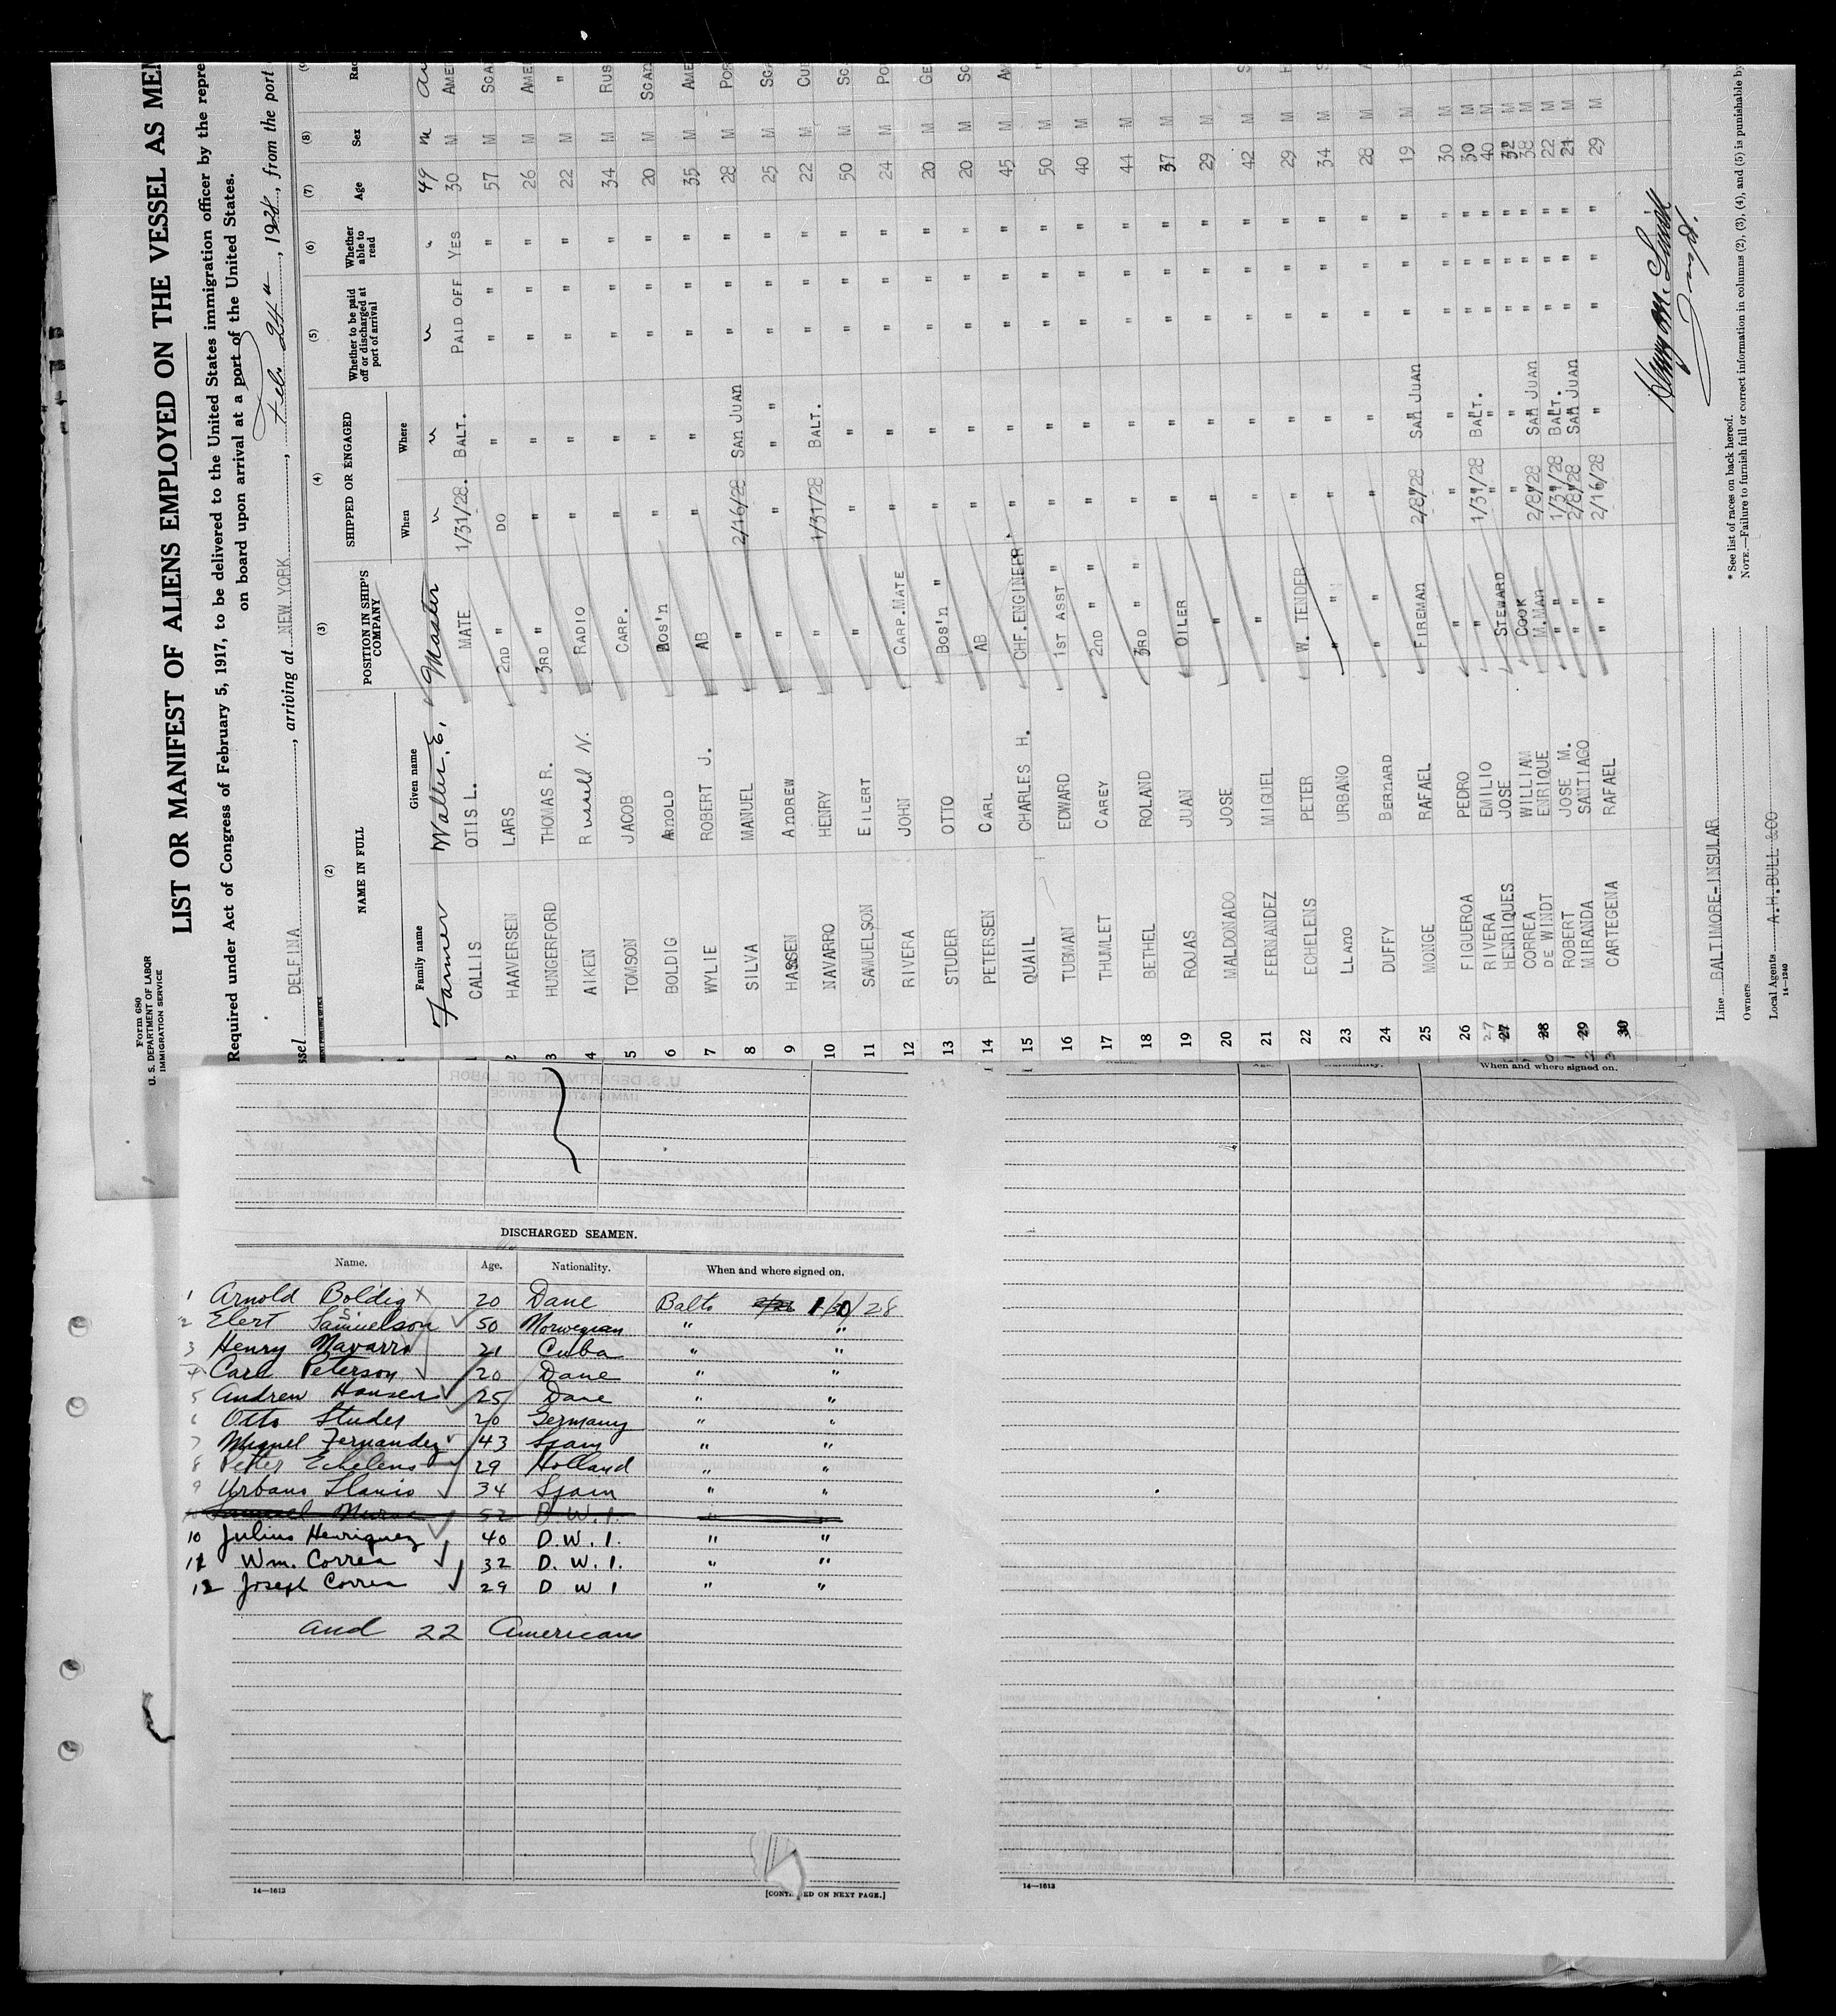 Form 680
U. S. DEPARTMENT OF LABOR
IMMIGRATION SERVICE
LIST OR MANIFEST OF ALIENS EMPLOYED ON THE VESSEL AS MEM
Required under Act of Congress of February 5, 1917, to be delivered to the United States immigration officer by the repre
on board upon arrival at a port of the United States.
ssel DELFINA, arriving at NEW YORK, Feb. 24, 1928, from the port
(2) (3) (4) (5) (6) (7) (8) (9)
NAME IN FULL POSITION IN SHIP'S COMPANY SHIPPED OR ENGAGED Whether to be paid off or discharged at port of arrival Whether able to read Age Sex Rac
Family name Given name When Where
Farmer Walter E. Master " " " " 49 m
1 CALLIS OTIS L. MATE 1/31/28. BALT. PAID OFF YES 30 M AME
2 HAAVERSEN LARS 2ND " DO " " " 57 M SCA
3 HUNGERFORD THOMAS R. 3RD " " " " " 26 M AME
4 AIKEN Russell N. RADIO " " " " 22 M "
5 TOMSON JACOB CARP. " " " " 34 M RUS
6 BOLDIG ARNOLD BOS'N " " " " 20 M SCAN
7 WYLIE ROBERT J. AB " " " " 35 M AME
8 SILVA MANUEL " 2/16/28 SAN JUAN " " 28 M POR
9 HANSEN ANDREW " " " " " 25 M SCA
10 NAVARRO HENRY " 1/31/28 BALT. " " 22 M CU
11 SAMUELSON EILERT " " " " " 50 M SC
12 RIVERA JOHN CARP.MATE " " " " 24 M PO
13 STUDER OTTO BOS'N " " " " " 20 M GE
14 PETERSEN CARL AB " " " " 20 M SC
15 QUAIL CHARLES H. CHF.ENGINEER " " " " 45 M AM
16 TUBMAN EDWARD 1ST ASST " " " " " 50 M "
17 THUMLET CAREY 2ND " " " " " " 40 M
18 BETHEL ROLAND 3RD " " " " " " 44 M
19 ROJAS JUAN OILER " " " " 37 M
20 MALDONADO JOSE " " " " " 29 M
21 FERNANDEZ MIGUEL " " " " " 42 M S
22 ECHELENS PETER W. TENDER " " " " 29 M
23 LLANO URBANO " " " " " 34 M S
24 DUFFY BERNARD " " " " " 28 M
25 MONGE RAFAEL FIREMAN 2/8/28 SAN JUAN " " 19 M
26 FIGUEROA PEDRO " " " " " 30 M
27 RIVERA EMILIO " 1/31/28 BALT. " " 30 M
HENRIQUES JOSE STEWARD " " " " 40 M
CORREA WILLIAM COOK " " " " 32 M
DE WINDT ENRIQUE M.MAN 2/8/28 SAN JUAN " " 38 M
ROBERT JOSE M. " 1/31/28 BALT. " " 22 M
MIRANDA SANTIAGO " 2/8/28 SAN JUAN " " 21 M
CARTEGENA RAFAEL " 2/16/28 " " " 29 M
Line BALTIMORE-INSULAR
Owners
Local Agents A.H.BULL &CO
14-1240
* See list of races on back hereof.
NOTE.—Failure to furnish full or correct information in columns (2), (3), (4), and (5) is punishable by
When and where signed on.
DISCHARGED SEAMEN.
Name. Age. Nationality. When and where signed on.
1 Arnold Boldig 20 Dane Balto 1/30/28
2 Elert Samuelson 50 Norwegian " "
3 Henry Navarro 21 Cuba " "
4 Carl Peterson 20 Dane " "
5 Andrew Hansen 25 Dane " "
6 Otto Studer 20 Germany " "
7 Miguel Fernandez 43 Spain " "
8 Peter Echelens 29 Holland " "
9 Urbano Llanio 34 Spain " "
Samuel Nurse 52 D.W.I. " "
10 Julius Henriquez 40 D.W.I. " "
11 Wm. Correa 32 D.W.I. " "
12 Joseph Correa 29 D W I " "
and 22 Americans
14—1613
[CONTINUED ON NEXT PAGE.]
14—1613